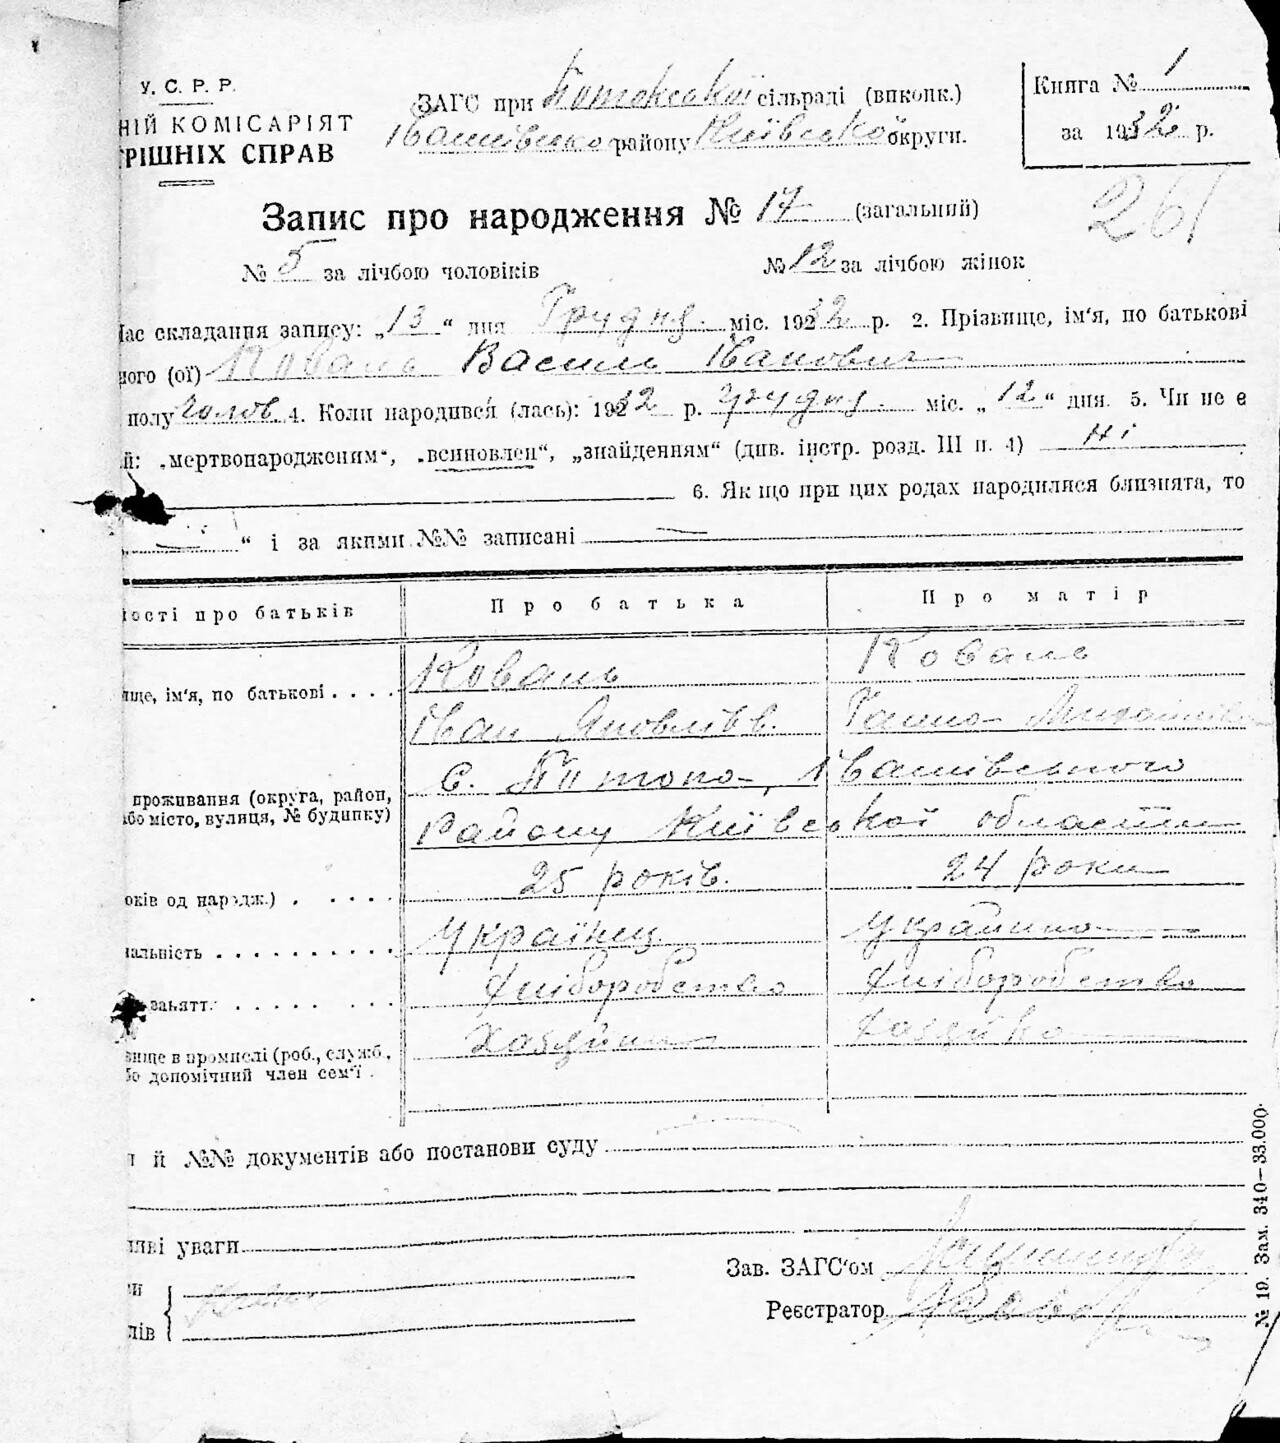 У. С. Р. Р.
НІЙ КОМІСАРІЯТ
РІШНІХ СПРАВ
ЗАГС при Потокської сільраді (виконк.)
Іванківсько району Київської округи.
Книга № 1
за 1932 р.
Запис про народження № 17 (загальний)
261
№ 5 за лічбою чоловіків № 12 за лічбою жінок
Час складання запису: „13“ дня Грудня міс. 1932 р. 2. Прізвище, ім'я, по батькові
ного (ої) Коваль Василь Іванович
полу Чолов. 4. Коли народився (лась): 1932 р. грудня міс. „12“ дня. 5. Чи не є
й: „мертвонародженим“, „всиновлен“, „знайденням“ (див. інстр. розд. III п. 4) Ні
6. Якщо при цих родах народилися близнята, то
“ і за якими №№ записані —
ості про батьків Про батька Про матір
ще, ім'я, по батькові Коваль Коваль
Іван Яковлівв. Ганна Михайлівна
проживання (округа, район,
або місто, вулиця, № будинку)
с. Потоки, Іванківського
Району Київської області
оків од нардж.) 25 років. 24 роки
альність Українец Українка
заьятт. Хліборобство Хліборобство
вище в промислі (роб., служб.,
бо допомічний член сем'ї
Хазяйин Хазяйка
й №№ документів або постанови суду
ливі уваги
ки
лів
Зав. ЗАГС'ом
Реєстратор
№ 19. Зам. 340—33.000.